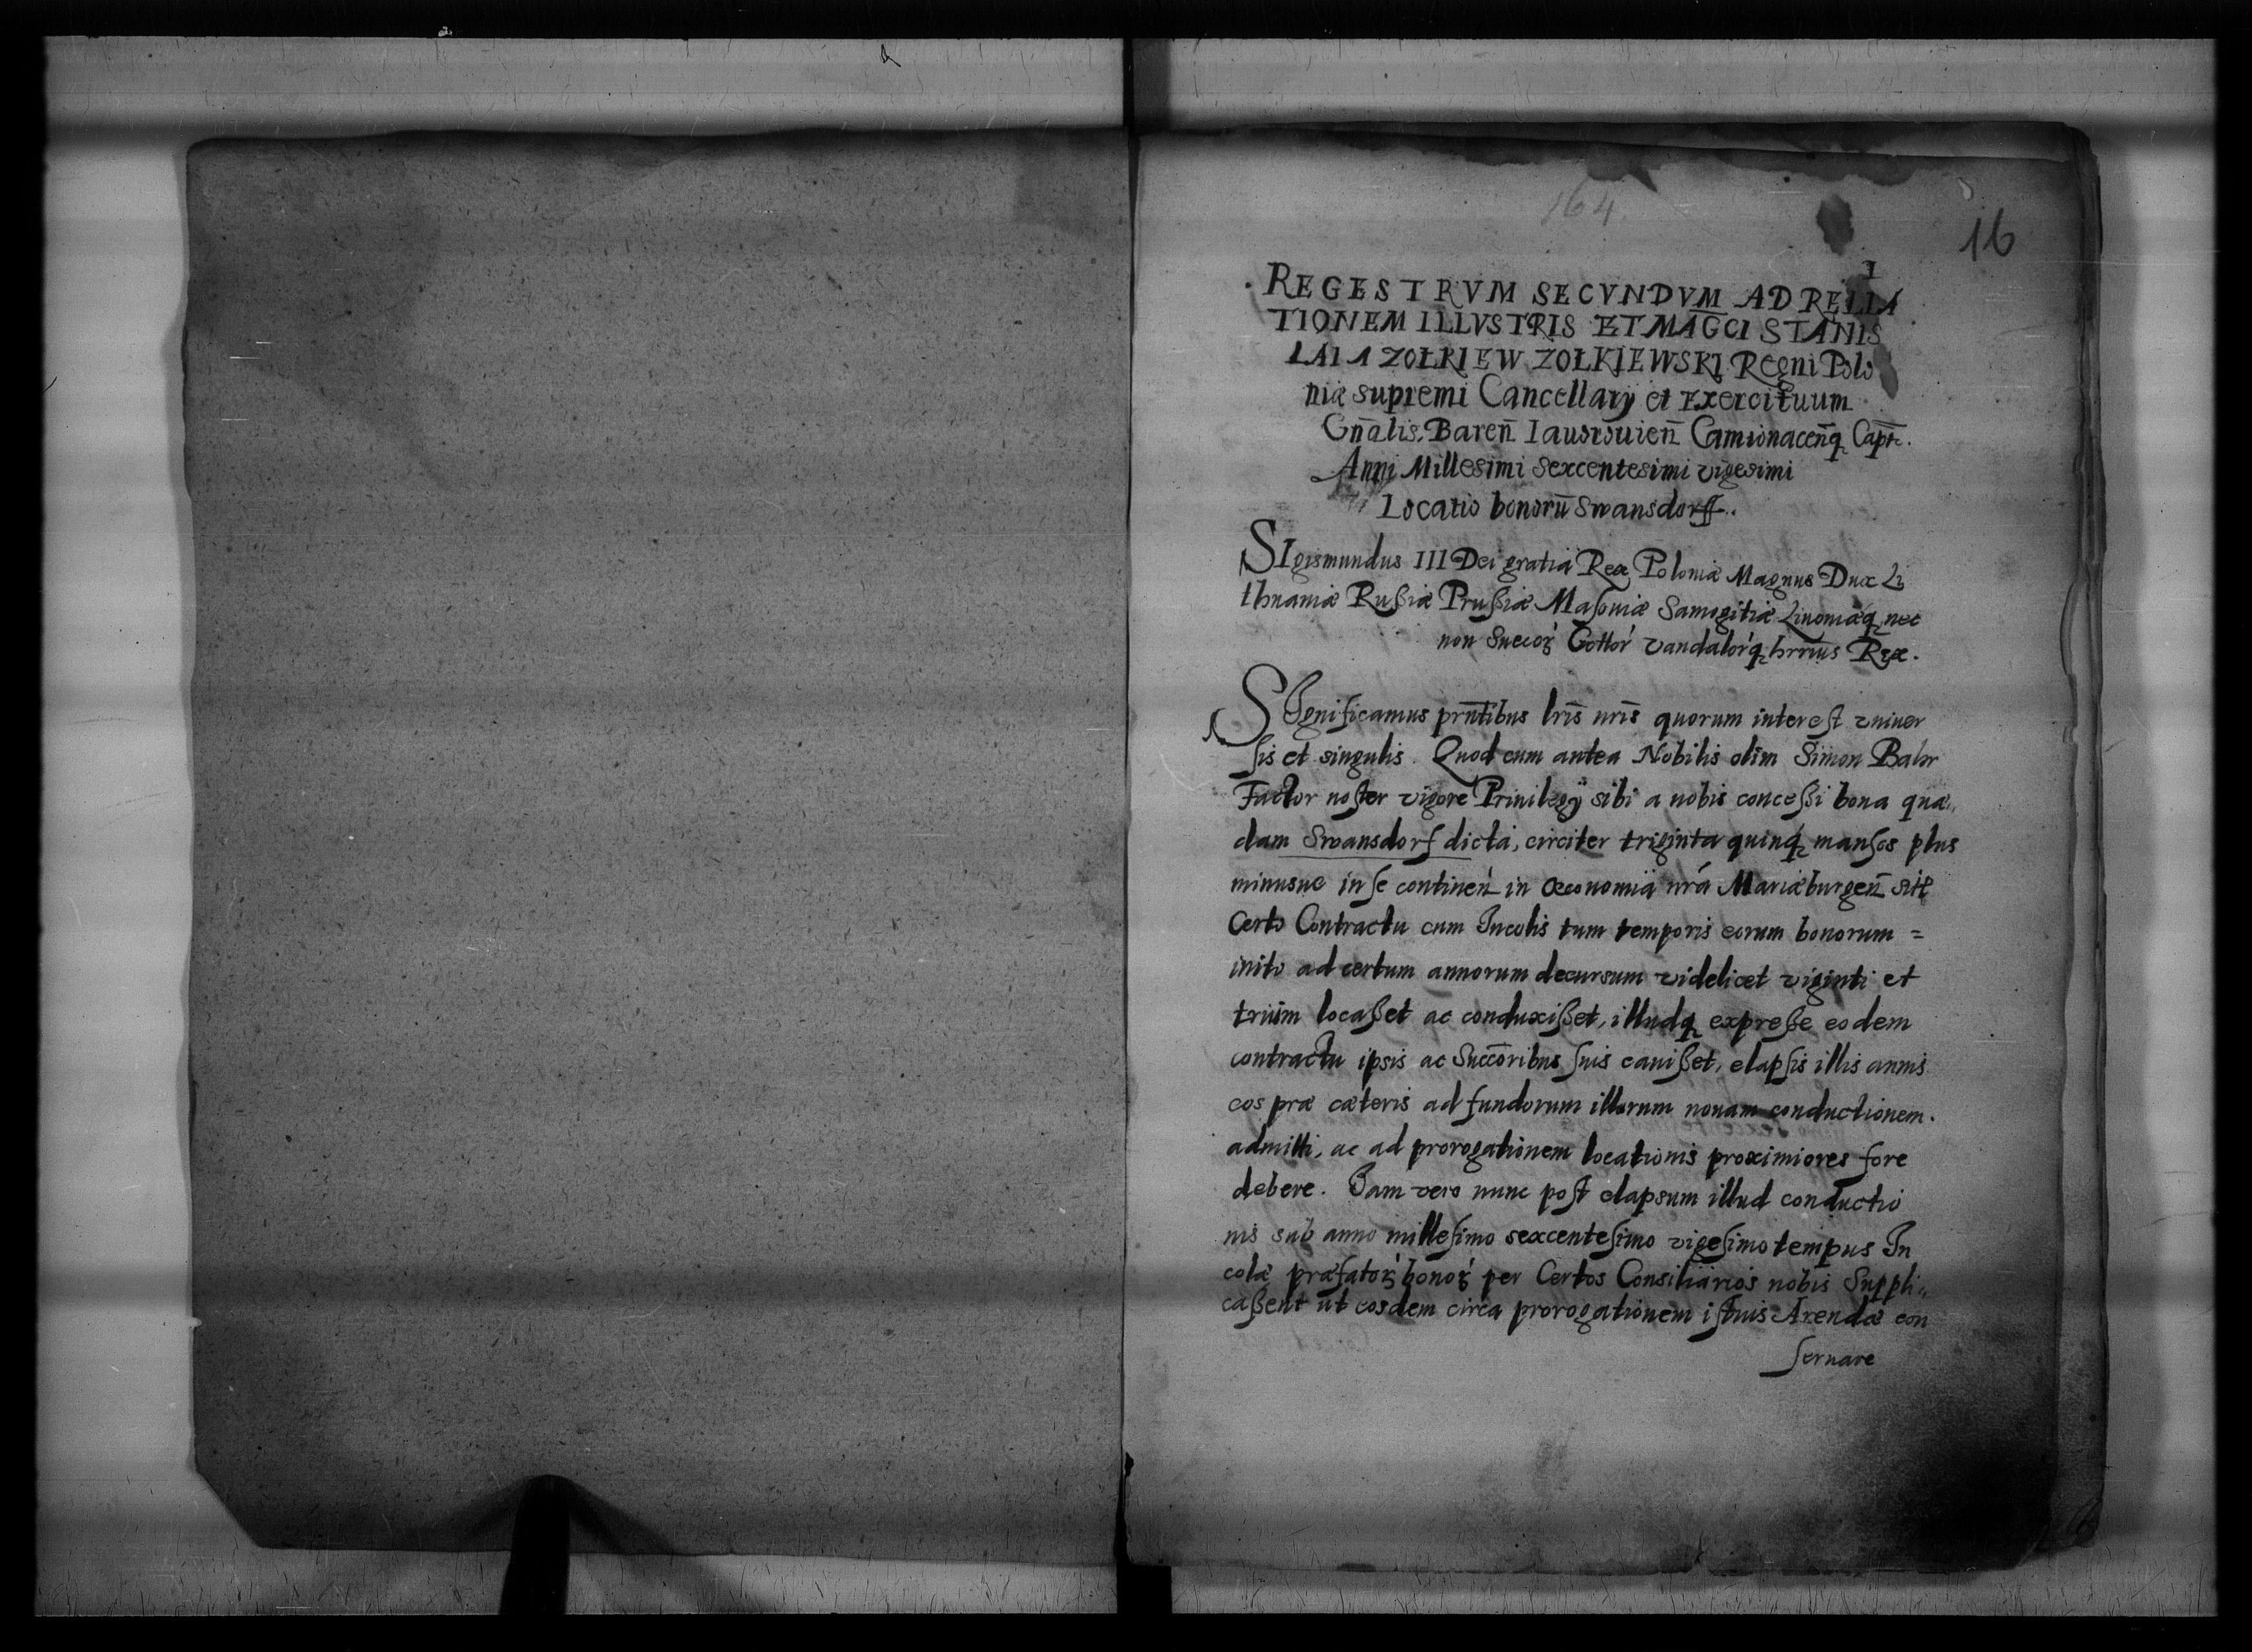 164
16
1
REGESTRVM SECVNDVM AD RELLA
TIONEM ILLVSTRIS ET MAG̅CI STANIS
LAI A ZOŁKIEW ZOŁKIEWSKI Regni Polo
niæ supremi Cancellarij et Exercituum
Gn̅alis, Baren̅ Iauorouien̅ Camionacen̅q Capt̅.
Anni Millesimi sexcentesimi vigesimi
Locatio bonorū Swansdorff.
SIgismundus III Dei gratia Rex Poloniæ Magnus Dux Li
thuaniæ Rußiæ Prußiæ Masouiæ Samogitiæ Liuoniæq nec
non Suecoꝝ Gottor̕ vandalor̕q hrrius Rex.
SIgnificamus prn̅tibus lr̅is nr̅is quorum interest vniuer
sis et singulis. Quod cum antea Nobilis olim Simon Bahr
Factor noster vigore Priuilegij sibi a nobis conceßi bona quæ„
dam Swansdorf dicta, circiter triginta quinq mansos plus
minusue in se continen̅ in œconomia nr̅a Mariæburgen̅ sit̅
Certo Contractu cum Incolis tum temporis eorum bonorum =
inito ad certum annorum decursum videlicet viginti et
trium locaßet ac conduxißet, illudq expreße eodem
contractu ipsis ac Succ̅oribus suis cauißet, elapsis illis annis
eos præ cæteris ad fundorum illorum nouam conductionem.
admitti, ac ad prorogationem locationis proximiores fore
debere. Iam vero nunc post elapsum illud conductio
nis sub anno millesimo sexcentesimo vigesimo tempus In
colæ præfatoꝝ bonoꝝ per Certos Consiliarios nobis Suppli„
caßent ut eosdem circa prorogationem istius Arendæ con
seruare